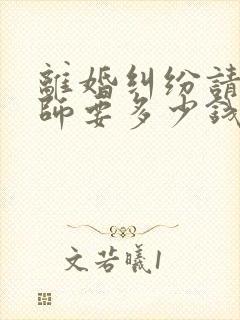 離婚纠纷請
師要多少錢
文若曦1